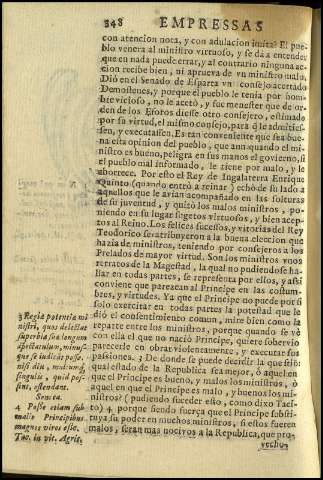 348 EMPRESSAS
con atencion nota, y con adulacion imita? El pue-
blo venera al ministro virtuoso, y se dá a entender
que en nada puede errar, y al contrario ninguna ac-
cion recibe bien, ni aprueva de vn ministro malo.
Dió en el Senado de Esparta vn consejo acertado
Demostenes, y porque el pueblo le tenia por hom-
bre vicioso, no le acetó, y fue menester que de or-
den de los Eforos diesse otro consejero, estimado
por su virtud, el mismo consejo, para q̃ le admities-
sen, y executassen. Es tan conveniente que sea bue-
na esta opinion del pueblo, que aun quando el mi-
nistro es bueno, peligra en sus manos el govierno, si
el pueblo mal informado, le tiene por malo, y le
aborrece. Por esto el Rey de Ingalaterra Enrique
Quinto (quando entró a reinar) echó de su lado a
aquellos que le avian acompañado en las solturas
de su juventud, y quitó los malos ministros, po-
niendo en su lugar sugetos virtuosos, y bien acep-
tos al Reino. Los felices sucessos, y vitorias del Rey
Teodorico se atribuyeron a la buena eleccion que
hazia de ministros, teniendo por consejeros a los
Prelados de mayor virtud. Son los ministros vnos
retratos de la Magestad, la qual no pudiendose ha-
llar en todas partes, se representa por ellos, y assi
conviene que parezcan al Principe en las costum-
bres, y virtudes. Ya que el Principe no puede por si
solo exercitar en todas partes la potestad que le
dió el consentimiento comun, mire bien como la
reparte entre los ministros, porque quando se vè
con ella el que no nació Principe, quiere sobervio
parecerlo en obrar violentamente, y executar sus
passiones. 3 De donde se puede decidir la questió:
qual estado de la Republica sea mejor, ó aquel en
que el Principe es bueno, y malos los ministros, ó
aquel en que el Principe es malo, y buenos los mi-
nistros? (pudiendo suceder esto, como dixo Taci-
to) 4 porque siendo fuerça que el Principe substi-
tuya su poder en muchos ministros, si estos fueren
malos, seràn mas nocivos a la Republica, que pro-
vecho-
3 Regia potentia mi
nistri, quos delectat
superbia sua longum
spectaculum, minus-
que se iudicat posse,
nisi diu, multumq́;
singulis, quid pos-
sint, ostendant.
Seneca.
4 Posse etiam sub
malis Principibus
magnos viros esse.
Tac. in vit. Agric.